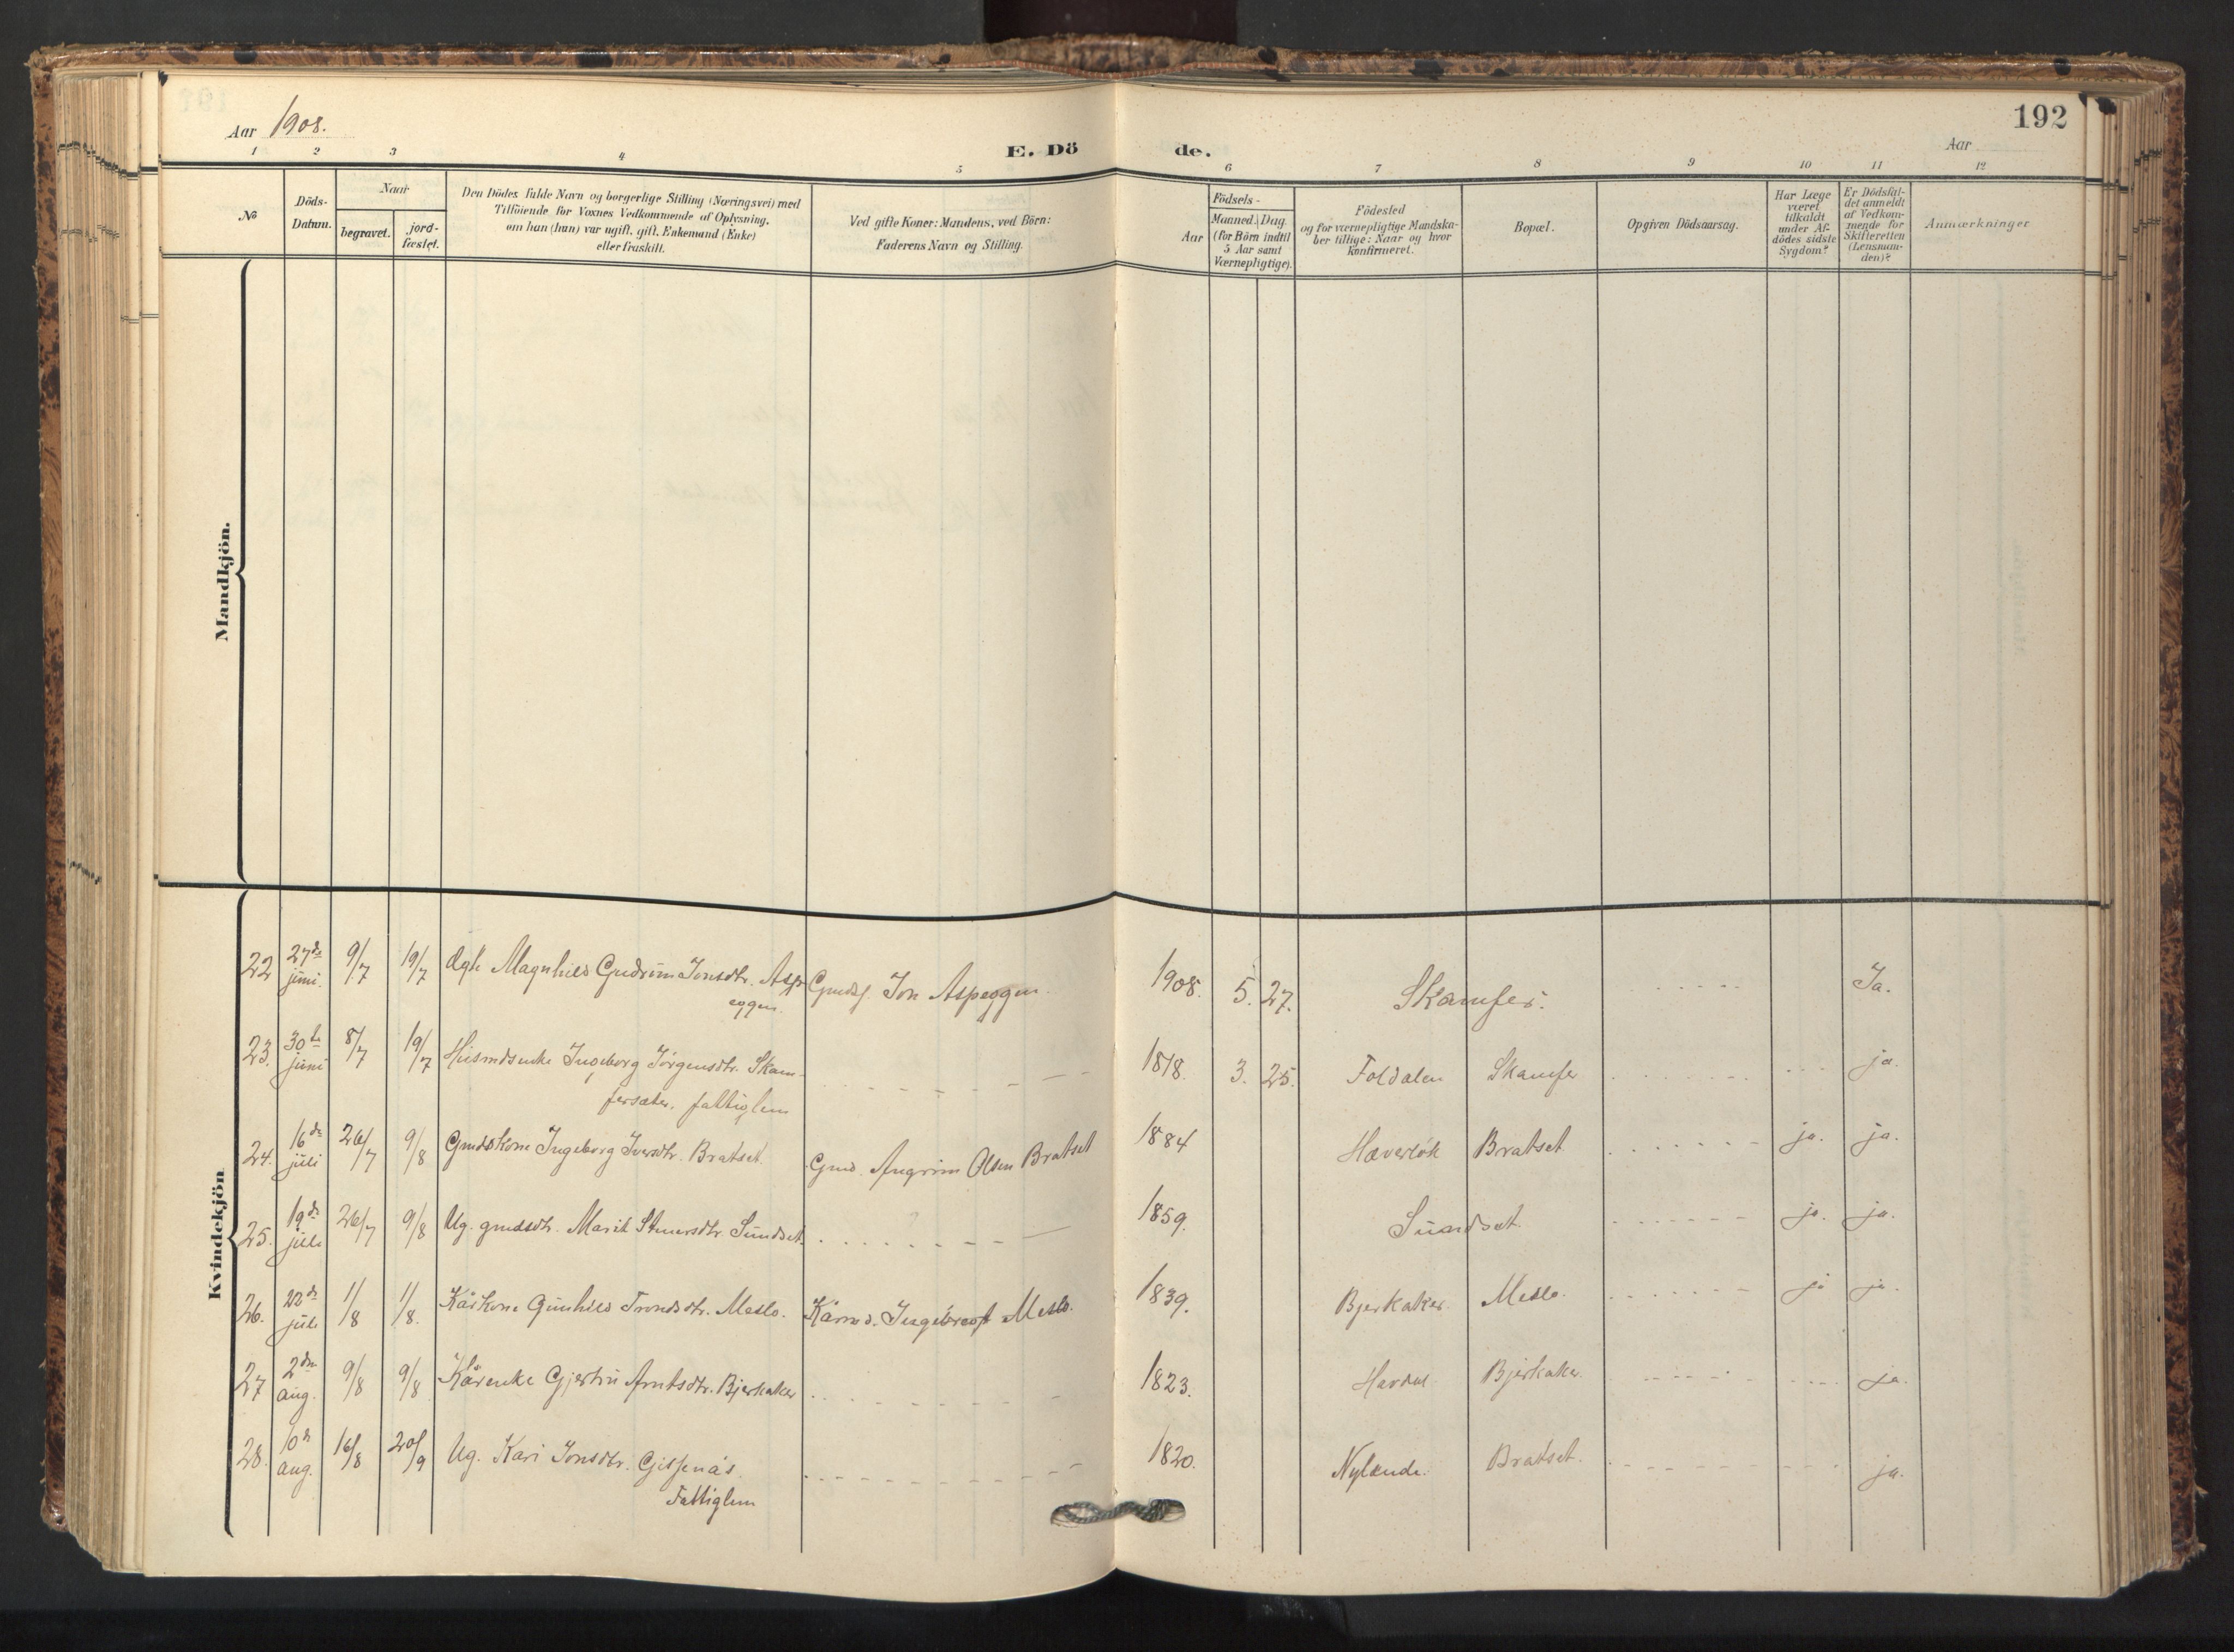 192
Aar 1908.
Aar
E. Dö de.
1 2 3 4 5 6 7 8 9 10 11 12
№
Döds-
Datum.
Naar
begravet.
jord-
fæstet.
Den Dödes fulde Navn og borgerlige Stilling (Næringsvei) med
Tilföiende for Voxnes Vedkommende af Oplysning,
om han (hun) var ugift, gift, Enkemand (Enke)
eller fraskilt.
Ved gifte Koner: Mandens, ved Börn:
Faderens Navn og Stilling.
Aar
Födsels-
Maaned. Dag.
(for Börn indtil
5 Aar samt
Værnepligtige).
Födested
og for værnepligtige Mandska-
ber tillige: Naar og hvor
konfirmeret.
Bopæl.
Opgiven Dödsaarsag.
Har Læge
været
tilkaldt
under Af-
dödes sidste
Sygdom?
Er Dödsfal-
det anmeldt
af Vedkom-
mende for
Skifteretten
(Lensman-
den)?
Anmærkninger
Mandkjön.
Kvindekjön
22 27de juni. 9/7 19/7 Magnhild Gudrun Jonsdtr. Asp-
eggen. Jon Aspeggen. 1908. 5. 27. Skamfer. Ja.
23. 30te juni 8/7 19/7 Husmdsenke Ingeborg Jörgensdtr. Skam-
fersæter. fattiglem 1818. 3. 25. Foldalen Skamfer ja.
24. 16de juli 26/7 9/8 Gmdskone Ingeborg Iversdtr. Bratset. Gmd. Angrim Olsen Bratset 1884 Bratset ja. ja.
25. 19de juli 26/7 9/8 Ug. gmdsdtr. Marit Sundset. 1859. Sundset. ja. ja.
26. 22de juli 1/8 1/8. Kårkone Gunhild Trondsdtr. Meslo. Kårmd. Ingebregt Meslo. 1839. Bjerkaker. Meslo. ja ja.
27 2den aug. 9/8 9/8 Kårenke Gjertru Arntsdtr. Bjerkaker 1823. Havdal. Bjerkaker. ja.
28. 10de aug. 16/8 20/9 Ug. Kari Jonsdtr. Gisnås.
Fattiglem 1820. Nylænde. Bratset. ja.